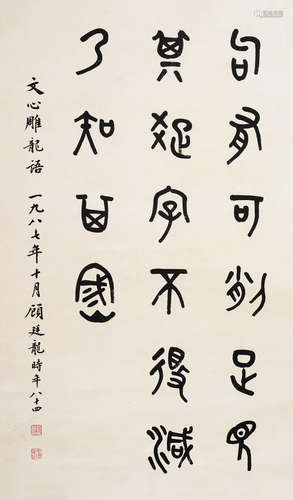 句有可削足見
其疏字不得減
乃知其密
文心雕龍語 一九八七年十月顧廷龍時年八十四